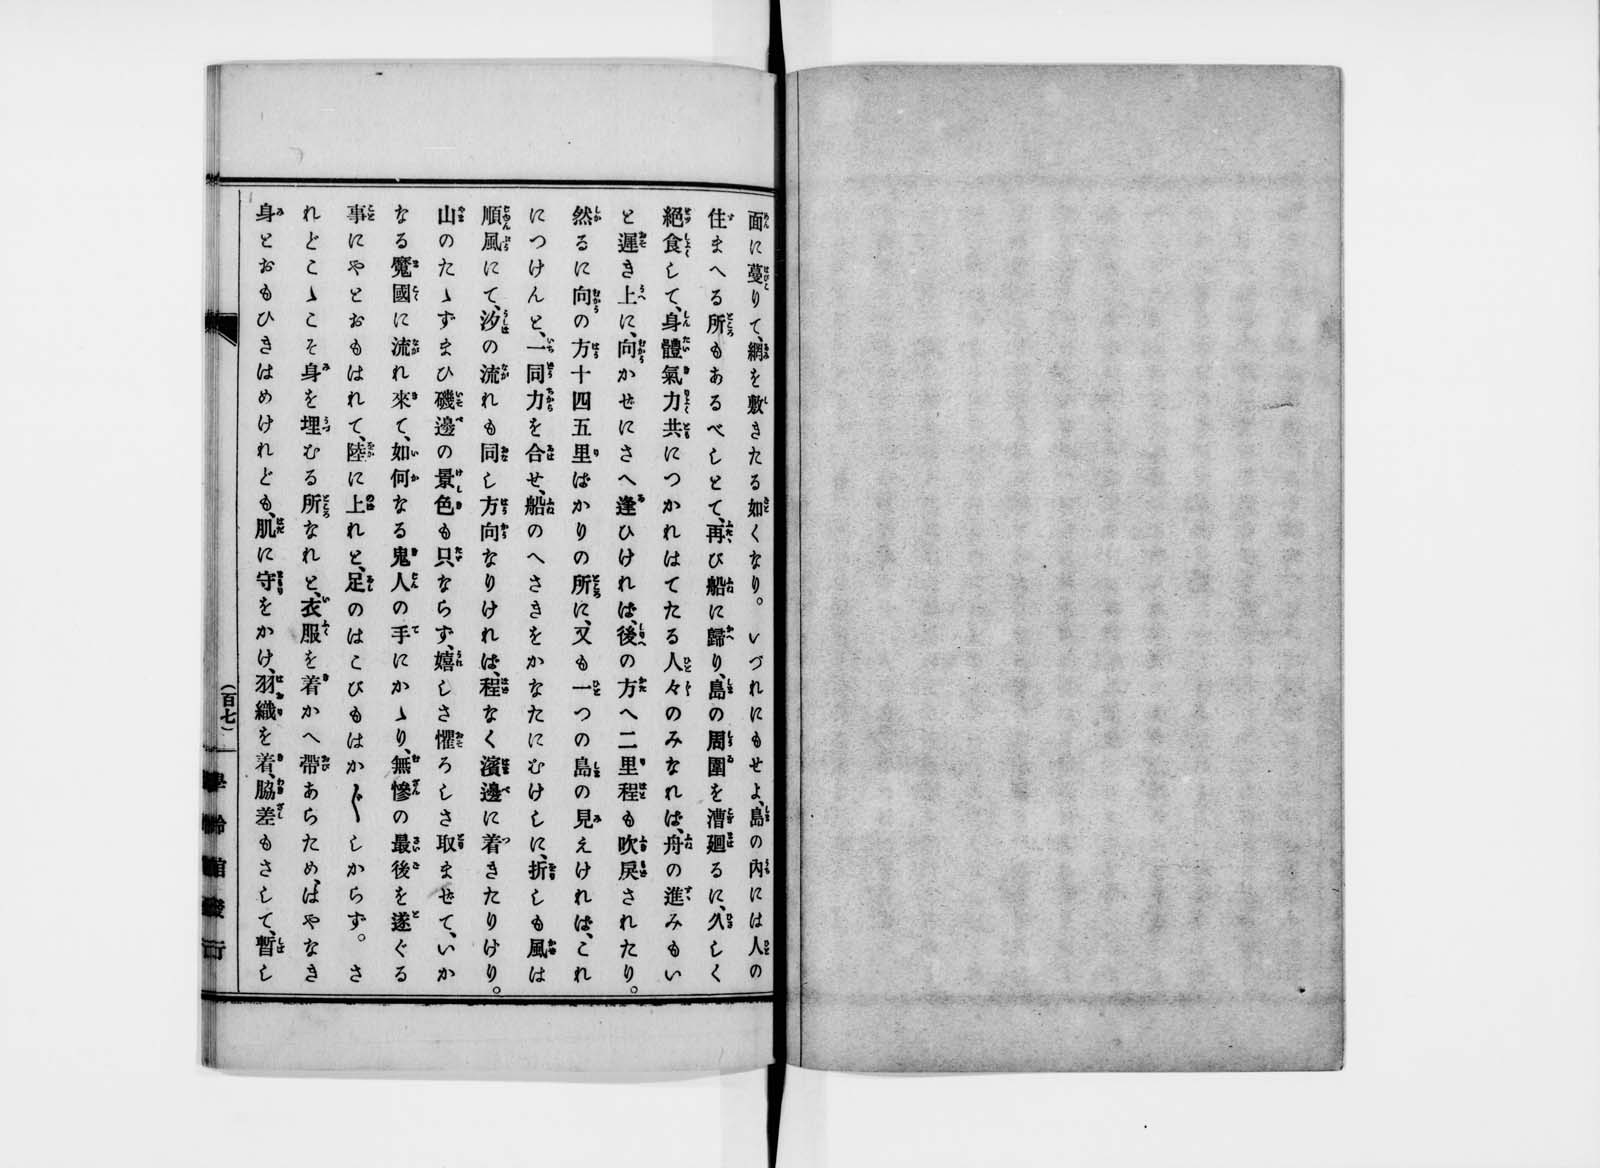 面に蔓りて、網を敷きたる如くなり。いづれにもせよ、島の内には人の
住まへる所もあるべしとて、再び船に歸り、島の周圍を漕廻るに、久しく
絕食して、身體氣力共につかれはてたる人々のみなれば、舟の進みもい
と遲き上に、向かぜにさへ逢ひければ、後の方へ二里程も吹戾されたり。
然るに向の方十四五里ばかりの所に、又も一つの島の見えければ、これ
につけんと、一同力を合せ、船のへさきをかなたにむけしに、折しも風は
順風にて、汐の流れも同し方向なりければ、程なく濱邊に着きたりけり。
山のたゝずまひ磯邊の景色も只ならず、嬉しさ懼ろしさ取ませて、いか
なる魔國に流れ來て、如何なる鬼人の手にかゝり、無慘の最後を遂ぐる
事にやとおもはれて、陸に上れと、足のはこびもはか〴〵しからず。さ
れどこゝこそ身を埋むる所なれと、衣服を着かへ帶あらため、ばやなき
身とおもひきはめけれども、肌に守をかけ、羽織を着、脇差もさして、暫し
（百七）